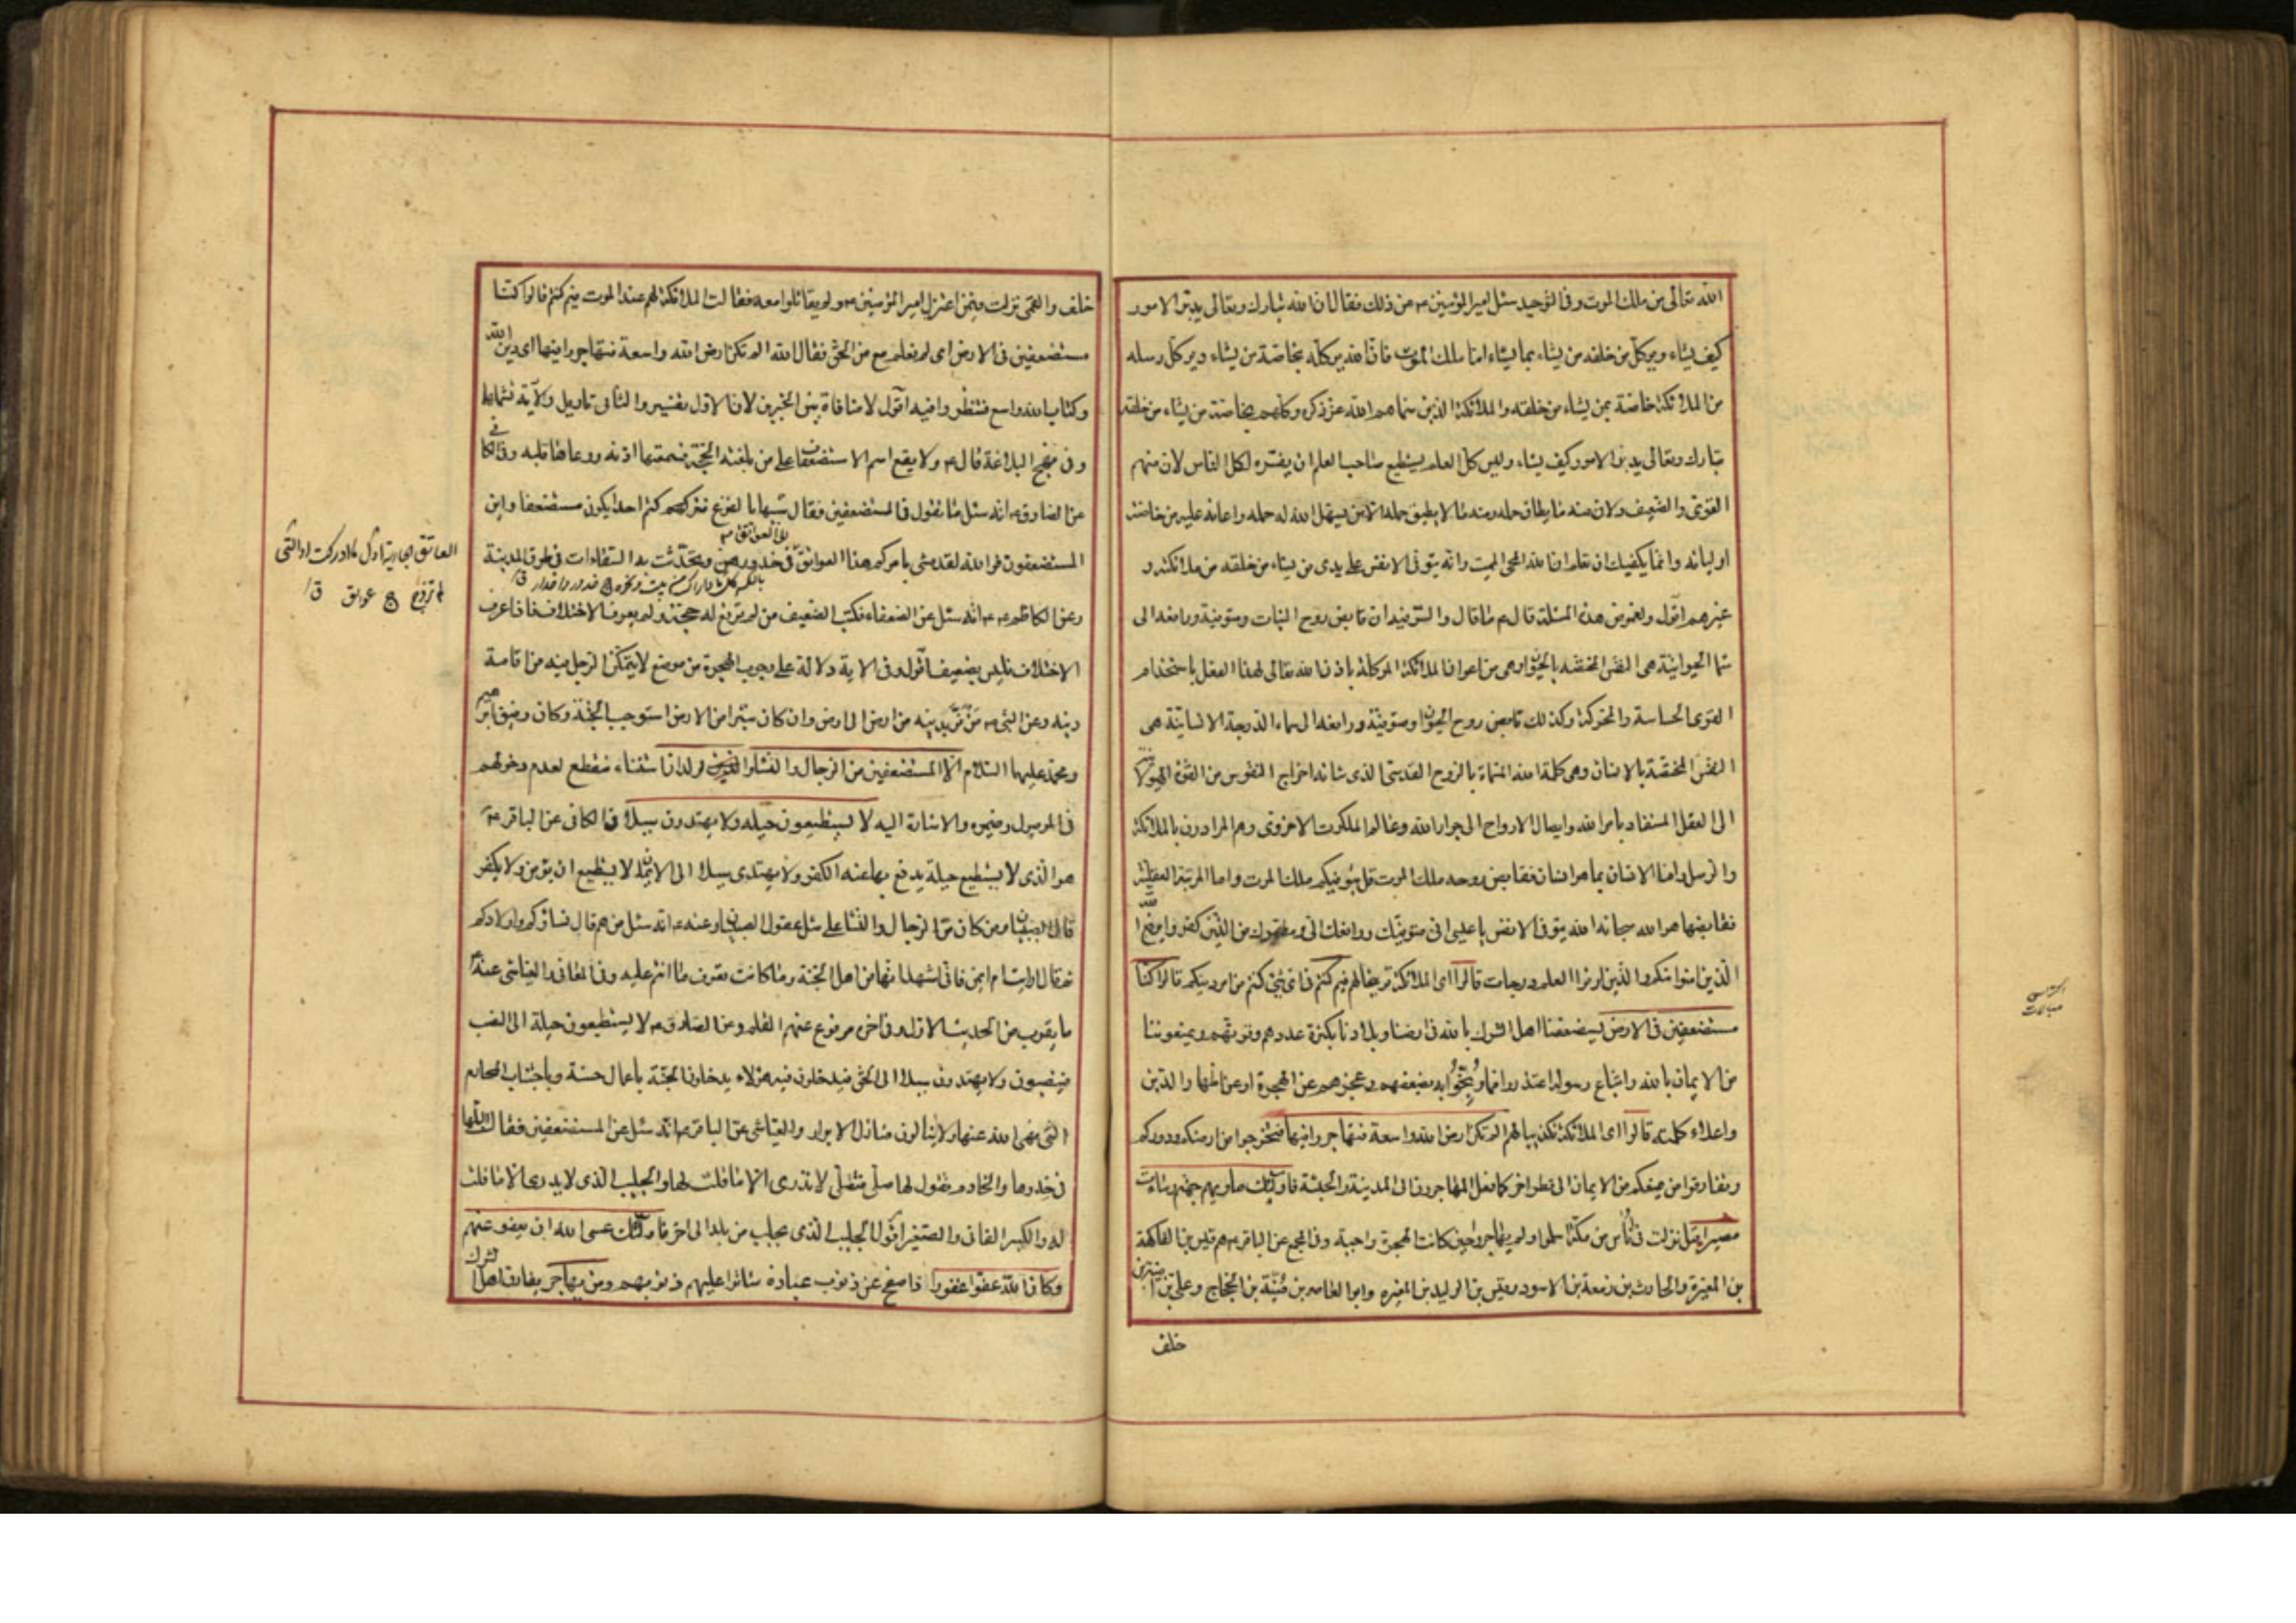 الله تعالى من ملك الموت وفى التوحيد سئل امير المؤمنين ع عن ذلك فقال ان الله تبارك وتعالى يدبر الامور
كيف يشاء ويوكل من خلقه من يشاء بما يشاء اما ملك الموت فان الله يوكله بخاصة من يشاء ويوكل رسله
من الملائكة خاصة بمن يشاء من خلقه والملائكة الذين سماهم الله عز ذكره وكلهم بخاصة من يشاء من خلقه
تبارك وتعالى يدبر الامور كيف يشاء وليس كل العلم يستطيع صاحب العلم ان يفسره لكل الناس لان منهم
القوى والضعيف ولان منه ما يطاق حمله ومنه ما لا يطيق حمله الا من يسهل الله له حمله واعانه عليه من خاصة
اوليائه وانما يكفيك ان تعلم ان الله المحى المميت وانه يتوفى الانفس على يدى من يشاء من خلقه من ملائكته و
غيرهم اقول ولغموض هذه المسئلة قال ع ما قال والسر فيه ان قابض روح النبات ومتوفيه ورافعه الى
سماء الحيوانية هى النفس المختصة بالحيوان وهى من اعوان الملائكة الموكلة باذن الله تعالى لهذا الفعل باستخدام
القوى الحساسة والمحركة وكذلك قابض روح الحيوان ومتوفيه ورافعه الى سماء الدرجة الانسانية هى
النفس المختصة بالانسان وهى كلمة الله المسماة بالروح القدسى الذى شانه اخراج النفوس من القوة الهيولانية
الى العقل المستفاد بامر الله وايصال الارواح الى جوار الله وعالم الملكوت الاخروى وهم المرادون بالملائكة
والرسل واما الانسان بما هو انسان فقابض روحه ملك الموت قل يتوفيكم ملك الموت واما المرتبة العقلية
فقابضها هو الله سبحانه الله يتوفى الانفس يا عيسى انى متوفيك ورافعك الى ومطهرك من الذين كفروا يرفع الله
الذين امنوا منكم والذين اوتوا العلم درجات قالوا اى الملائكة توبيخا لهم فيم كنتم فى اى شئ كنتم من امر دينكم قالوا كنا
مستضعفين فى الارض يستضعفنا اهل الشرك بالله فى ارضنا وبلادنا بكثرة عددهم وقوتهم ويمنعوننا
من الايمان بالله واتباع رسوله اعتذروا مما وبخوا به بضعفهم وعجزهم عن الهجرة او عن اظهار الدين
واعلاء كلمته قالوا اى الملائكة تكذيبا لهم الم تكن ارض الله واسعة فتهاجروا فيها فتخرجوا من ارضكم ودوركم
وتفارقوا من يمنعكم من الايمان الى قطر اخر كما فعل المهاجرون الى المدينة والحبشة فاولئك ماويهم جهنم وساءت
مصيرا قيل نزلت فى ناس من مكة اسلموا ولم يهاجروا حين كانت الهجرة واجبة وفى المجمع عن الباقر ع هم قيس بن الفاكهة
بن المغيرة والحارث بن زمعة بن الاسود وقيس بن الوليد بن المغيره وابو العاص بن منبه بن الحجاج وعلى بن امية بن
خلف
خلف والقمى نزلت فيمن اعتزل امير المؤمنين ع ولم يقاتلوا معه فقالت الملائكة لهم عند الموت فيم كنتم قالوا كنا
مستضعفين فى الارض اى لم نعلم مع من الحق فقال الله الم تكن ارض الله واسعة فتهاجروا فيها اى دين الله
وكتاب الله واسع فتنظروا فيه اقول لا منافاة بين الخبرين لان الاول تفسير والثانى تاويل والاية تشملهما
وفى نهج البلاغة قال ع ولا يقع اسم الاستضعاف على من بلغته الحجة فسمعتها اذنه ووعاها قلبه وفى الكافى
عن الصادق ع انه سئل ما تقول فى المستضعفين فقال شبيها بالفزع فتركتم احدا يكون مستضعفا واين
المستضعفون فوالله لقد مشى بامركم هذا العواتق الى العواتق فى خدورهن وتحدثت به السقاءات فى طرق المدينة
وعن الكاظم ع انه سئل عن الضعفاء فكتب الضعيف من لم ترفع له حجة ولم يعرف الاختلاف فاذا عرف
الاختلاف فليس بضعيف اقول وفى الاية دلالة على وجوب الهجرة من موضع لا يتمكن الرجل فيه من اقامة
دينه وعن النبى ص من فر بدينه من ارض الى ارض وان كان شبرا من الارض استوجب الجنة وكان رفيق ابراهيم
ومحمد عليهما السلام الا المستضعفين من الرجال والنساء والولدان استثناء منقطع لعدم دخولهم
فى الموصول وضميره والاشارة اليه لا يستطيعون حيلة ولا يهتدون سبيلا فى الكافى عن الباقر ع
هو الذى لا يستطيع حيلة يدفع بها عنه الكفر ولا يهتدى سبيلا الى الايمان لا يستطيع ان يؤمن ولا يكفر
قال الصبيان ومن كان من الرجال والنساء على مثل عقول الصبيان وعنه ع انه سئل من هم قال نساؤكم واولادكم
ثم قال ارايت ام ايمن فانى اشهد انها من اهل الجنة وما كانت تعرف ما انتم عليه وفى المعانى والعياشى عنه ع
ما يقرب من الحديث الاول وفى اخرى مرفوع عنهم القلم وعن الصادق ع لا يستطيعون حيلة الى النصب
فينصبون ولا يهتدون سبيلا الى الحق فيدخلون فيه هؤلاء يدخلون الجنة باعمال حسنة وباجتناب المحارم
التى نهى الله عنها ولا ينالون منازل الابرار والعياشى عن الباقر ع انه سئل عن المستضعفين فقال البلهاء
فى خدرها والخادم تقول لها صلى فتصلى لا تدرى الا ما قلت لها والجليب الذى لا يدرى الا ما قلت
له والكبير الفانى والصغير اقول الجليب الذى يجلب من بلد الى اخر فاولئك عسى الله ان يعفو عنهم
وكان الله عفوا غفورا ذا صفح عن ذنوب عباده ساترا عليهم ذنوبهم ومن يهاجر يفارق اهل الشرك
العاتق الجارية اول ما ادركت او التى
لم تزوج ج عواتق ق